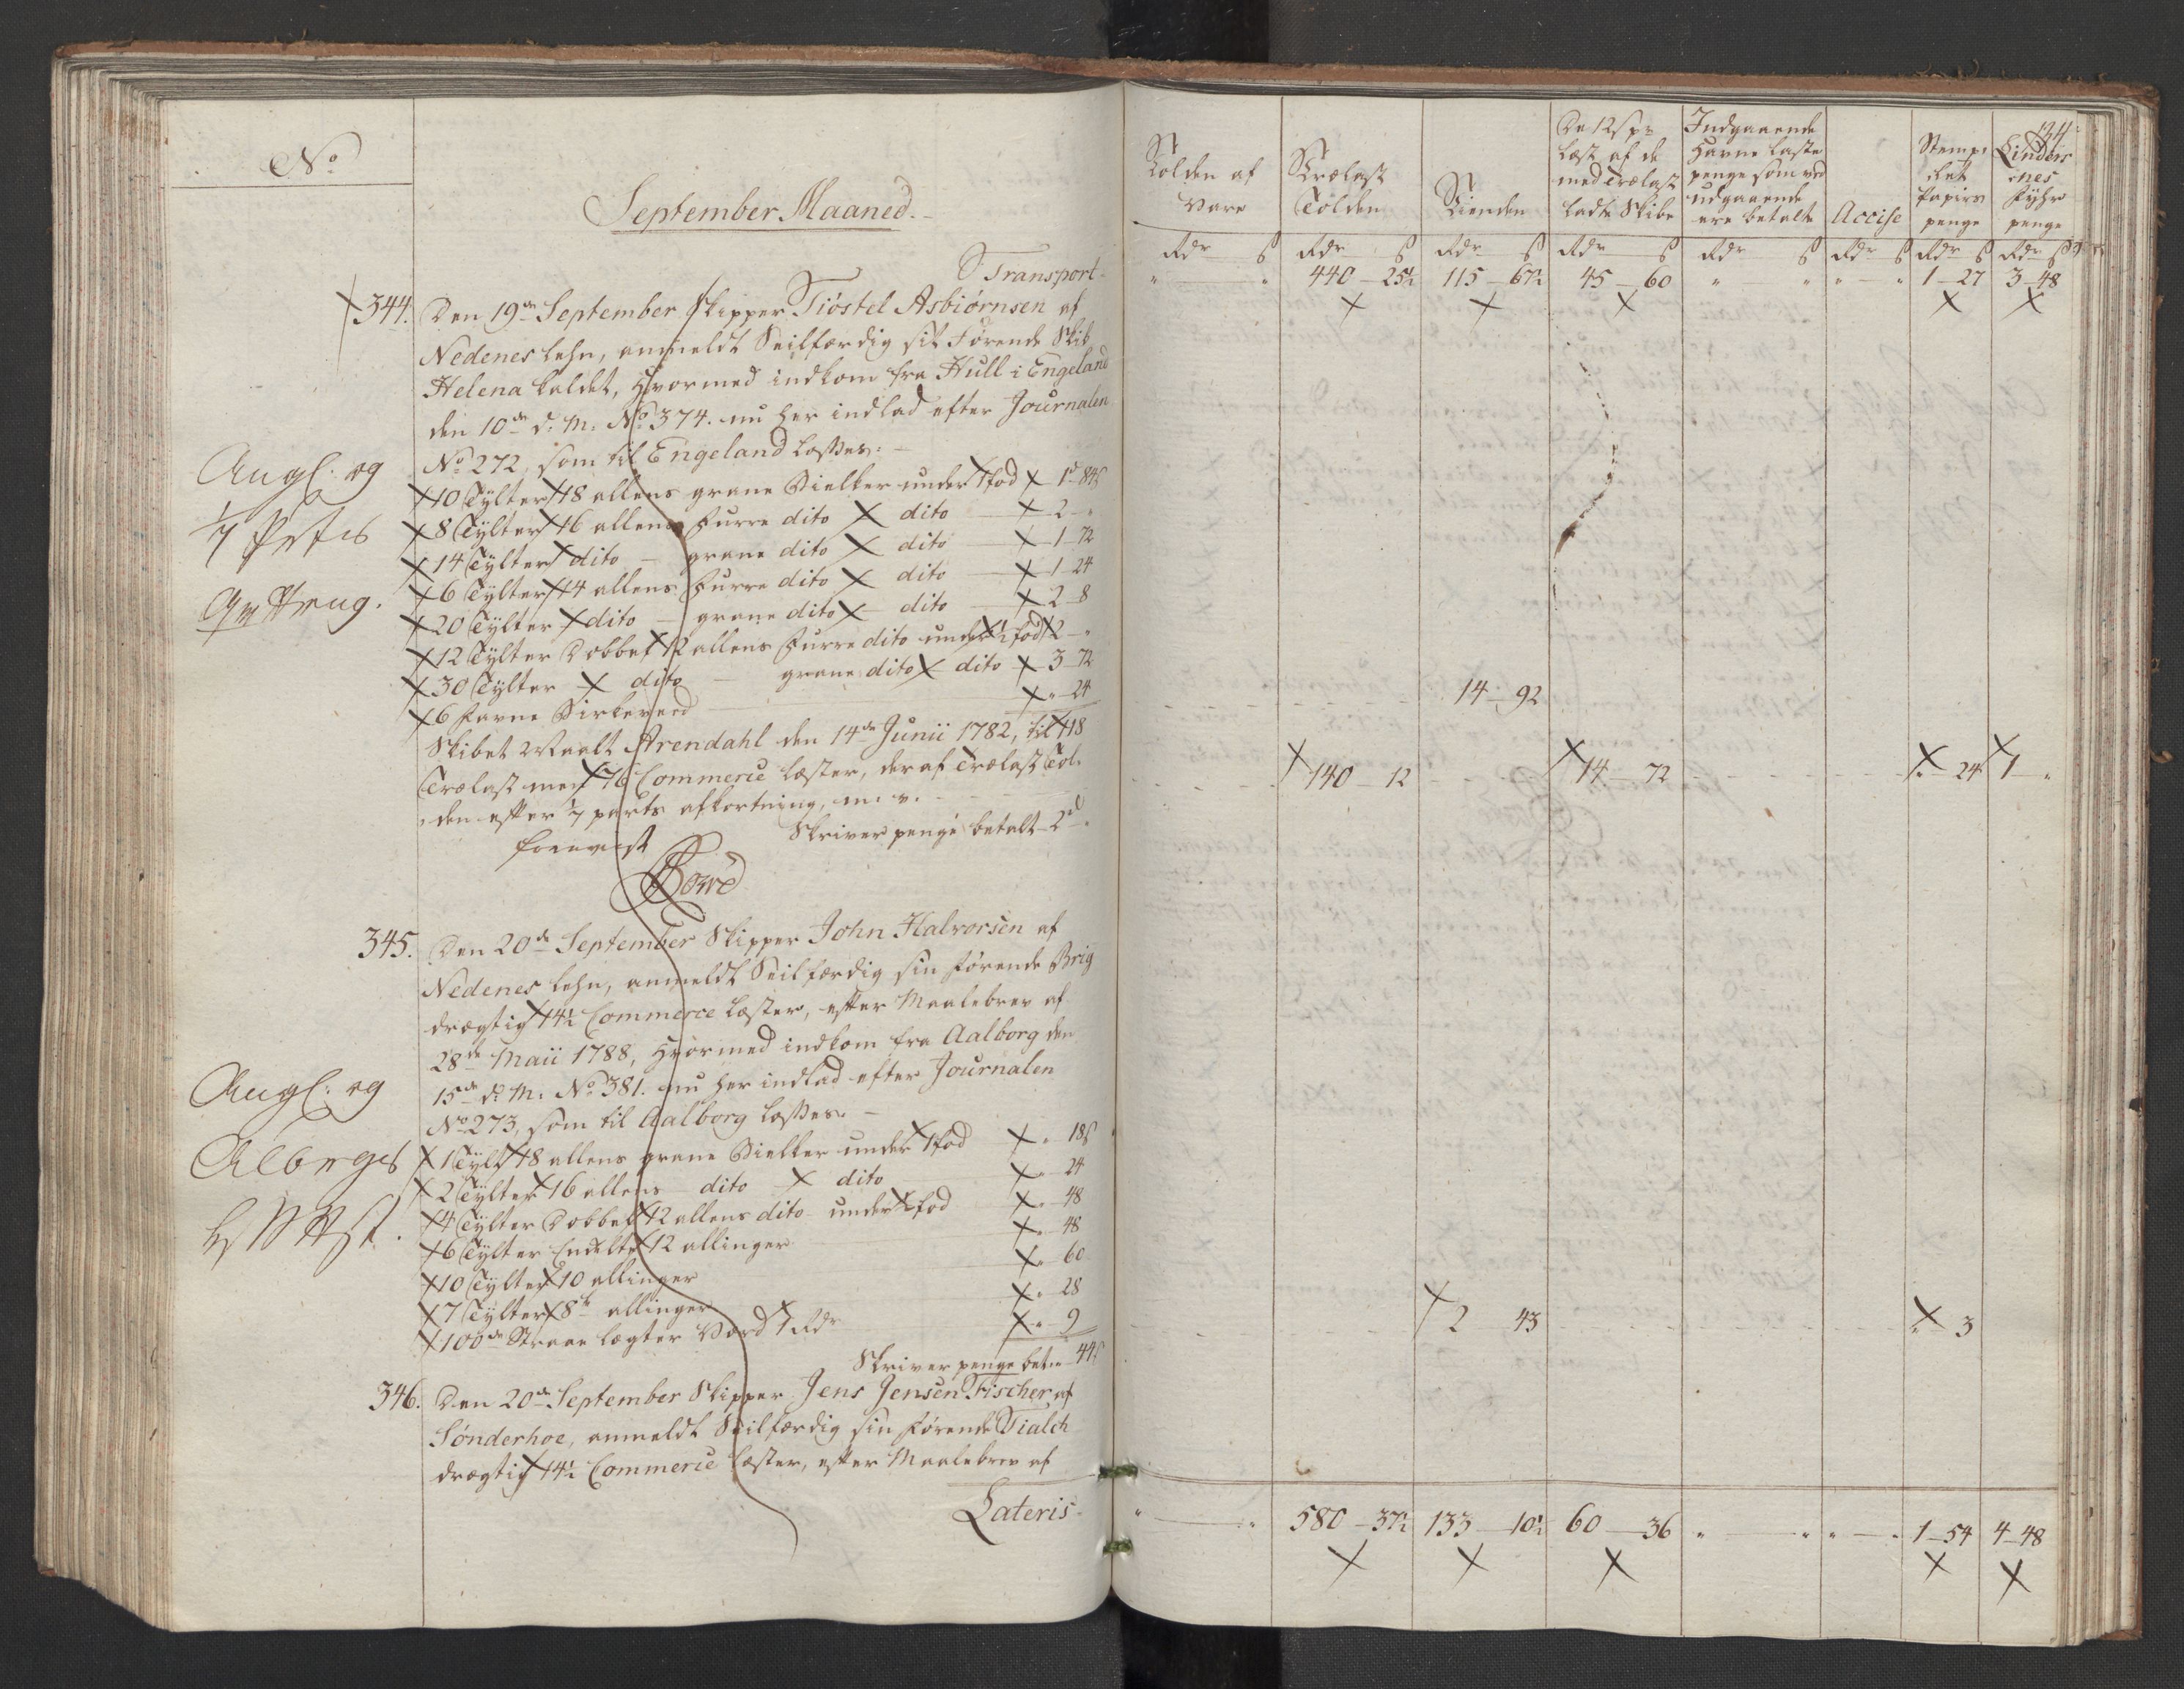 No
September Maaned.
Transport
344. Den 19de September Skipper Tiøstel Asbiørnsen af
Nedenes lehn, anmeldt Seilfærdig sit Førende Skib
Helena kaldet, hvormed indkom fra Hull i Engeland
den 10de d: M: No 374. nu her indlad efter Journalen
No 272, som til Engeland losses:
Angl: og
1/7 Parts
10 Tylter 18 allens grane Bielker under 1 fod 1d 84s
8 Tylter 16 allens furre dito dito 2 "
14 Tylter dito grane dito dito 1 72
6 Tylter 14 allens furre dito dito 1 24
20 Tylter dito grane dito dito 2 8
12 Tylter Dobbelt 12 allens furre dito under 1/2 fod 2 "
30 Tylter dito grane dito dito 3 72
6 Favne Birkeved " 24
Skibet Maalt Arendahl den 14de Junii 1782, til 118
Trælast men 76 Commerce læster, deraf Trælast Tol-
den efter 1/7 parts afkortning, m: v:
Skriver penge betalt 2d "
foreviist
345. Den 20de September Skipper John Halvorsen af
Nedenes lehn, anmeldt Seilfærdig sin førende Brig
drægtig 14 1/2 Commerce læster, efter Maalebrev af
28de Maii 1788, hvormed indkom fra Aalborg den
15de d: M: No 381. nu her indlad efter Journalen
No 273, som til Aalborg losses.
Angl: og
Alborgs
1 Tylt 18 allens grane Bielker under 1 fod " 18s
2 Tylter 16 allens dito dito " 24
4 Tylter Dobbelt 12 allens dito under 1/2 fod " 48
6 Tylter Enkelte 12 allinger " 48
10 Tylter 10 allinger " 60
7 Tylter 8te allinger " 28
100de Straae lægter Værd 1 Rdr " 9
Skriver penge bet: " 44s
346. Den 20de September Skipper Jens Jensen Fischer af
Sønderhoe, anmeldt Seilfærdig sin førende Tialck
drægtig 14 1/2 Commerce læster, efter Maalebrev af
Lateris
134
Tolden af Vare
Trælast Tolden
Tienden
De 12 s pr læst af de med Trælast ladte Skibe
Indgaaende Havne laste penge som ved udgaaende ere betalte
Accise
Stemp: let Papirs penge
Lindøes nes Fyhr penge
Rdr s Rdr s Rdr s Rdr s Rdr s Rdr s Rdr s Rdr s
" " 440 25 1/2 115 67 1/2 45 60 " " " " 1 27 3 48
14 92
140 12 14 72 " 24 1 "
2 43 " 3
" " 580 37 1/2 133 10 1/2 60 36 " " " " 1 54 4 48